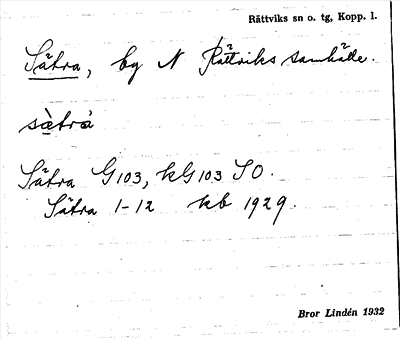 Rättviks sn o. tg, Kopp. l.
Sätra, by N Rättviks samhälle.
sätra
Sätra G103, kG103 SO.
Sätra 1-12 kb 1929.
Bror Lindén 1932